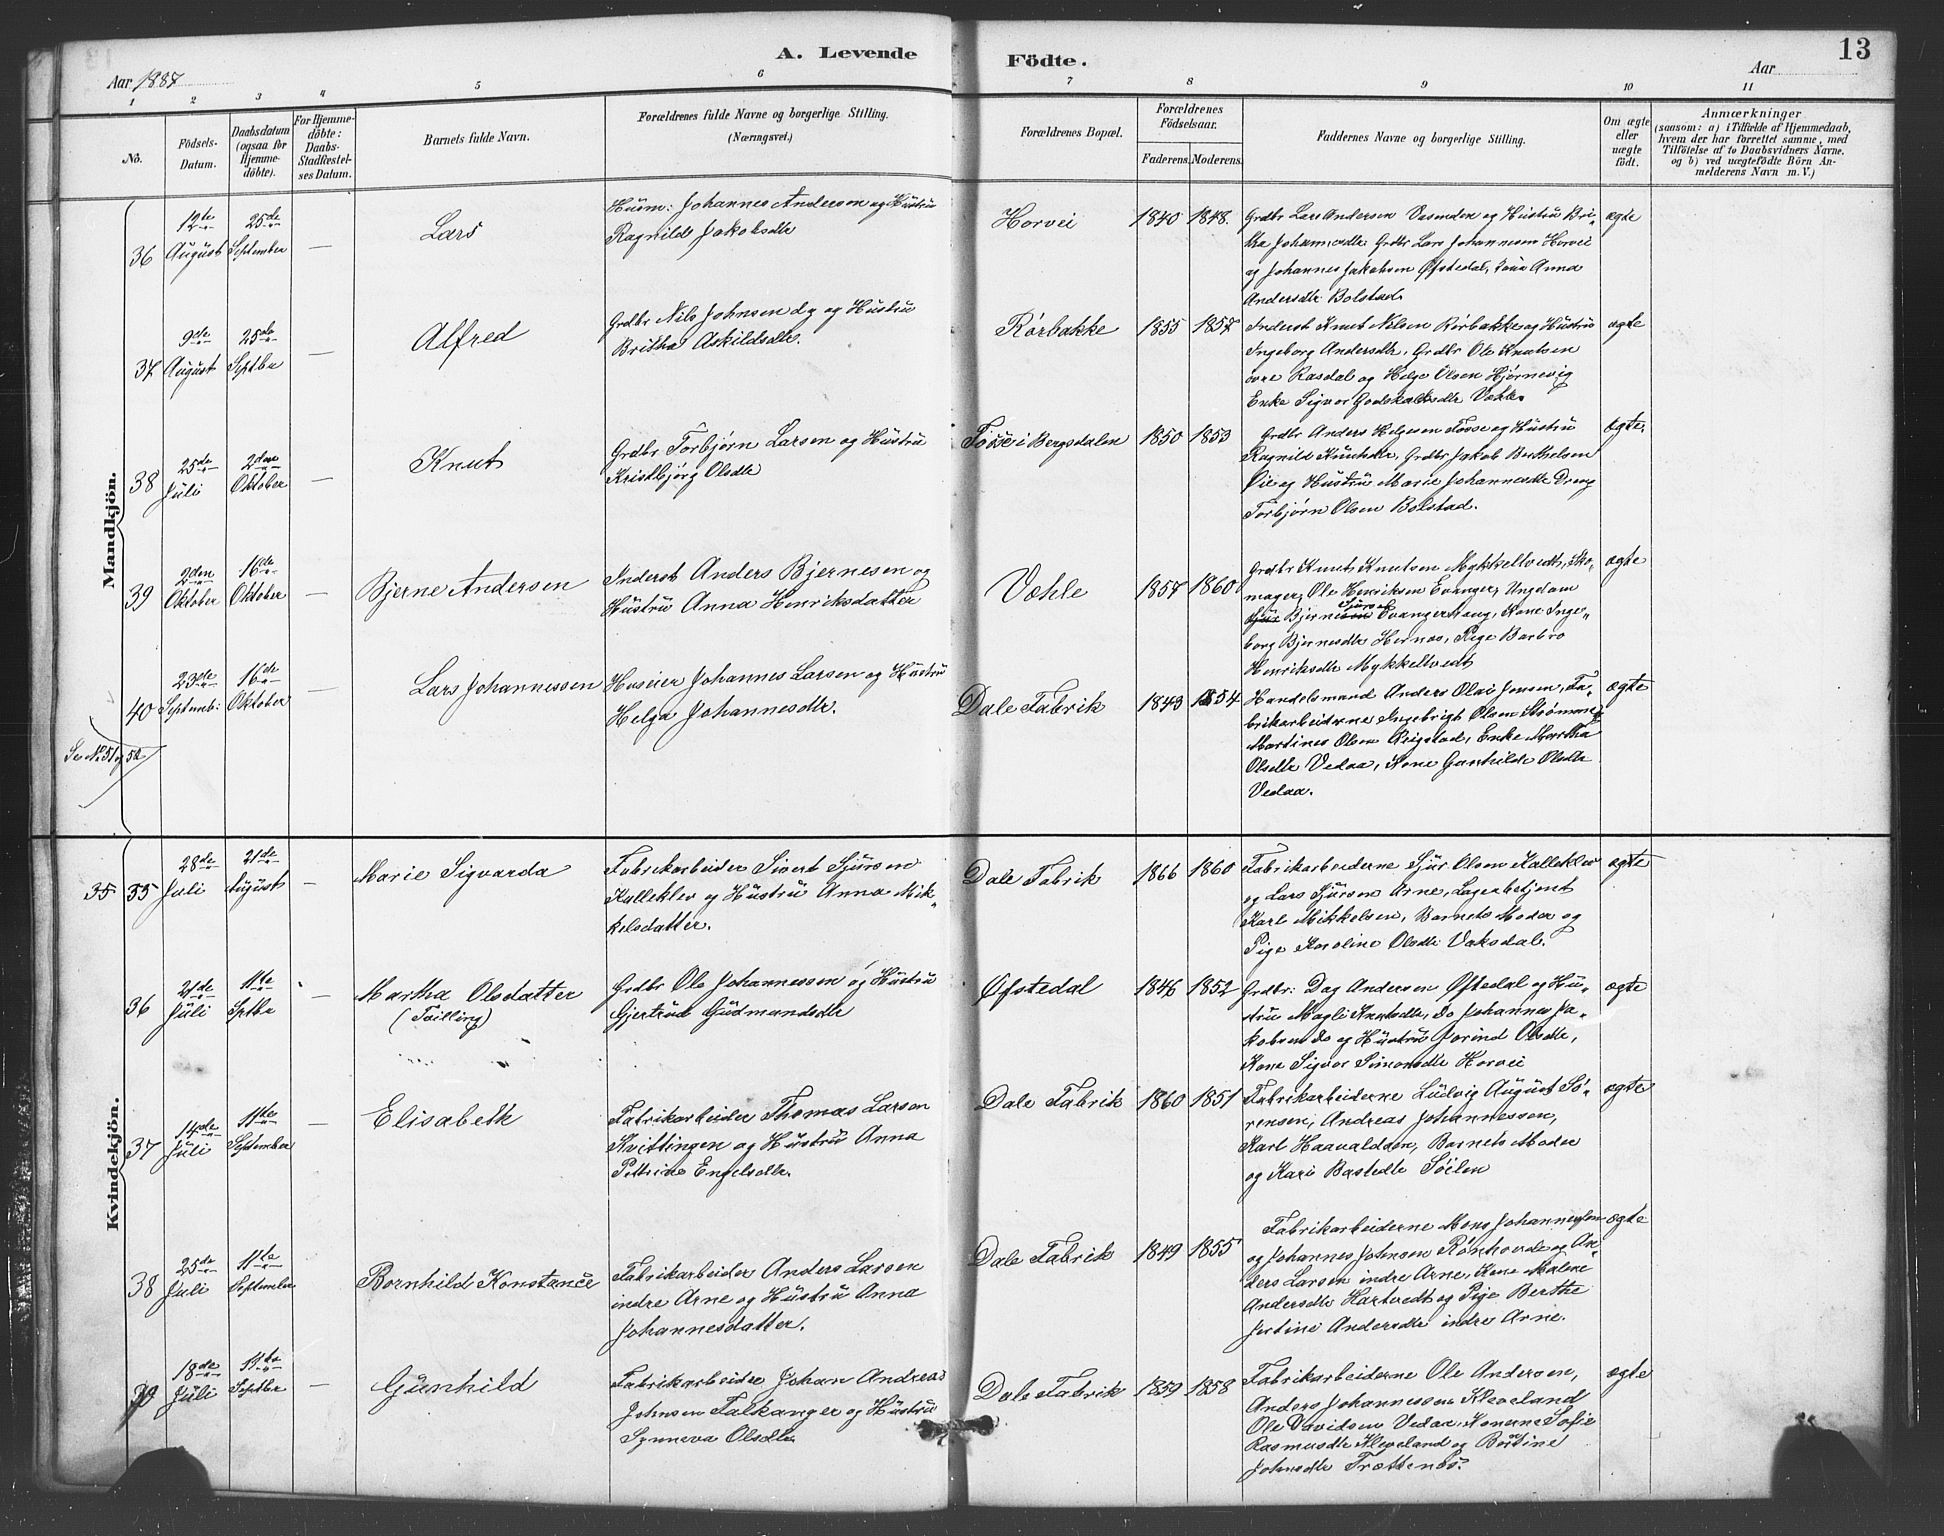 A. Levende Födte.
13
Aar 1887
Aar
1 2 3 4 5 6 7 8 9 10 11
No.
Födsels-
Datum.
Daabsdatum
(ogsaa for
Hjemme-
döbte).
For Hjemme-
döbte:
Daabs-
Stadfæstel-
ses Datum.
Barnets fulde Navn.
Forældrenes fulde Navne og borgerlige Stilling.
(Næringsvei.)
Forældrenes Bopæl.
Forældrenes
Födselsaar.
Faderens. Moderens.
Faddernes Navne og borgerlige Stilling.
Om ægte
eller
uægte
födt.
Anmærkninger
(saasom: a) i Tilfælde af Hjemmedaab,
hvem der har forrettet samme, med
Tilföielse af to Daabsvidners Navne,
og b) ved uægtefödte Börn An-
melderens Navn m. V.)
Mandkjön.
36
12te
August
25de
September
—
Lars
Husm: Johannes Andersen og Hustru
Ragnilde Jakobsdtr
Horvei
1840 1848.
Grdbr Lars Andersen Vasenden og Hustru Bri-
tha Johannesdtr. Grdbr Lars Johannesen Horvei
og Johannes Jakobsen Øfstedal, Anna
Andersdtr Bolstad
ægte
37
9de
August
25de
Septbr
—
Alfred
Grdbr Nils Johnsen dy og Hustru
Britha Askildsdtr.
Rörbakke
1855 1857
Inderst Knut Nilsen Rörbakke og Hustru
Ingeborg Andersdtr, Grdbr Ole Knutsen
övre Rasdal og Helge Olsen Hjørnevig
Enke Sigvor Godskalksdtr Væhle.
ægte
38
25de
Juli
2den
Oktober
—
Knut
Grdbr Torbjørn Larsen og Hustru
Kristbjörg Olsdtr
Fosse i Bergsdalen
1850 1853
Grdbr Anders Helgesen Fosse og Hustru
Ragnild Knutsdtr, Grdbr Jakob Berthelsen
Øie og Hustru Marie Johannesdtr Dreng
Torbjørn Olsen Bolstad.
ægte.
39
2den
Oktober
16de
Oktober
—
Bjerne Andersen
Inderst Anders Bjernesen og
Hustru Anna Henriksdatter
Væhle
1857 1860
Grdbr Knut Knutsen Mykkeltvedt, Sko-
mager Ole Henriksen Evanger, Ungdom
Bjerne Sjursen Evangerhaug, Kone Inge-
borg Bjernesdtr Hernæs, Pige Barbro
Henriksdtr Mykkeltvedt
ægte
40
23de
Septemb:
16de
Oktober
—
Lars Johannessen
Huseier Johannes Larsen og Hustru
Helga Johannesdtr.
Dale Fabrik
1843 1854
Handelsmand Anders Olai Jensen, Fa-
brikarbeiderne Ingebrigt Olsen Strømme
Martines Olsen Reigstad, Enke Martha
Olsdtr Vedaa, Kone Gunhilde Olsdtr
Vedaa.
ægte
Se No 51 og 52
Kvindekjön.
35
35
28de
Juli
21de
August
—
Marie Sigvarda
Fabrikarbeider Sivert Sjursen
Kalleklev og Hustru Anna Mik-
kelsdatter.
Dale Fabrik
1866 1860
Fabrikarbeiderne Sjur Olsen Kalleklev
og Lars Sjursen Arne, Lagerbetjent
Karl Mikkelsen, Barnets Moder og
Pige Karoline Olsdtr Vaksdal.
ægte
36
21de
Juli
11te
Sptbr
—
Martha Olsdatter
(Tvilling)
Grdbr Ole Johannessen og Hustru
Gjertrud Gudmundsdtr
Øfstedal
1846 1852
Grdbr: Dag Andersen Øfstedal og Hu-
stru Magli Knutsdtr, Do Johannes Ja-
kobsen Do og Hustru Jorind Olsdtr,
Kone Sigvor Simonsdtr Horvei
ægte
37
14de
Juli
11te
September
—
Elisabeth
Fabrikarbeider Thomas Larsen
Kvittingen og Hustru Anna
Petrine Engelsdtr.
Dale Fabrik
1860 1851
Fabrikarbeiderne Ludvig August Sö-
rensen, Andreas Johannessen,
Karl Haavaldsen, Barnets Moder
og Kari Bastedtr Söilen
ægte
38
25de
Juli
11te
September
—
Bornhild Konstance
Fabrikarbeider Anders Larsen
indre Arne og Hustru Anna
Johannesdatter.
Dale Fabrik
1849 1855
Fabrikarbeiderne Mons Johannessen
og Johannes Johnsen Rönhovde og An-
ders Larsen indre Arne, Kone Malene
Andersdtr Hartvedt og Pige Berthe
Jertine Andersdtr indre Arne.
ægte
39
18de
Juli
11te
Septbr
—
Gunhild
Fabrikarbeider Johan Andreas
Johnsen Falkanger og Hustru
Synneva Olsdtr
Dale Fabrik
1859 1858
Fabrikarbeiderne Ole Andersen,
Anders Johannessen Kleveland
Ole Davidsen Vedaa, Konerne Sofie
Rasmusdtr Kleveland og Bertine
Johnsdtr Trættenes.
ægte